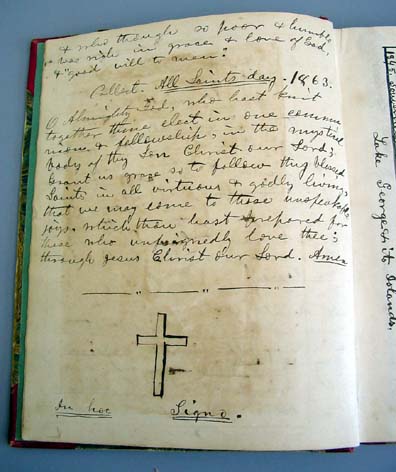 & who though so poor & humble,
was rich in grace & love of God,
& "good will to men."
Collect. All Saints day. 1863.
O Almighty God, who hast knit
together thine elect in one commu
nion & fellowship, in the mystical
body of thy Son Christ our Lord;
Grant us grace so to follow thy blessed
Saints in all virtuous & godly living,
that we may come to those unspeakable
joys, which thou hast prepared for
those who unfeignedly love thee;
through Jesus Christ Our Lord. Amen
In hoc Signo.
1845.
Lake George & its Islands.